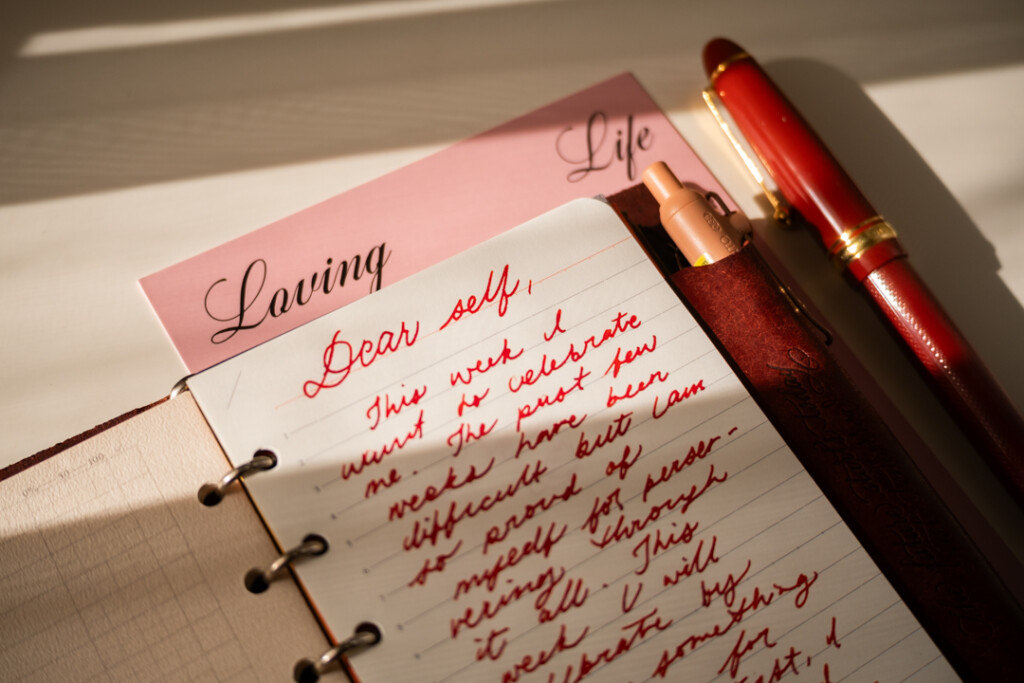 Loving
Life
Dear self,
This week I
want to celebrate
me. The past few
weeks have been
difficult but I am
so proud of
myself for perser-
vering through
it all. This
week I will
celebrate by
something
for